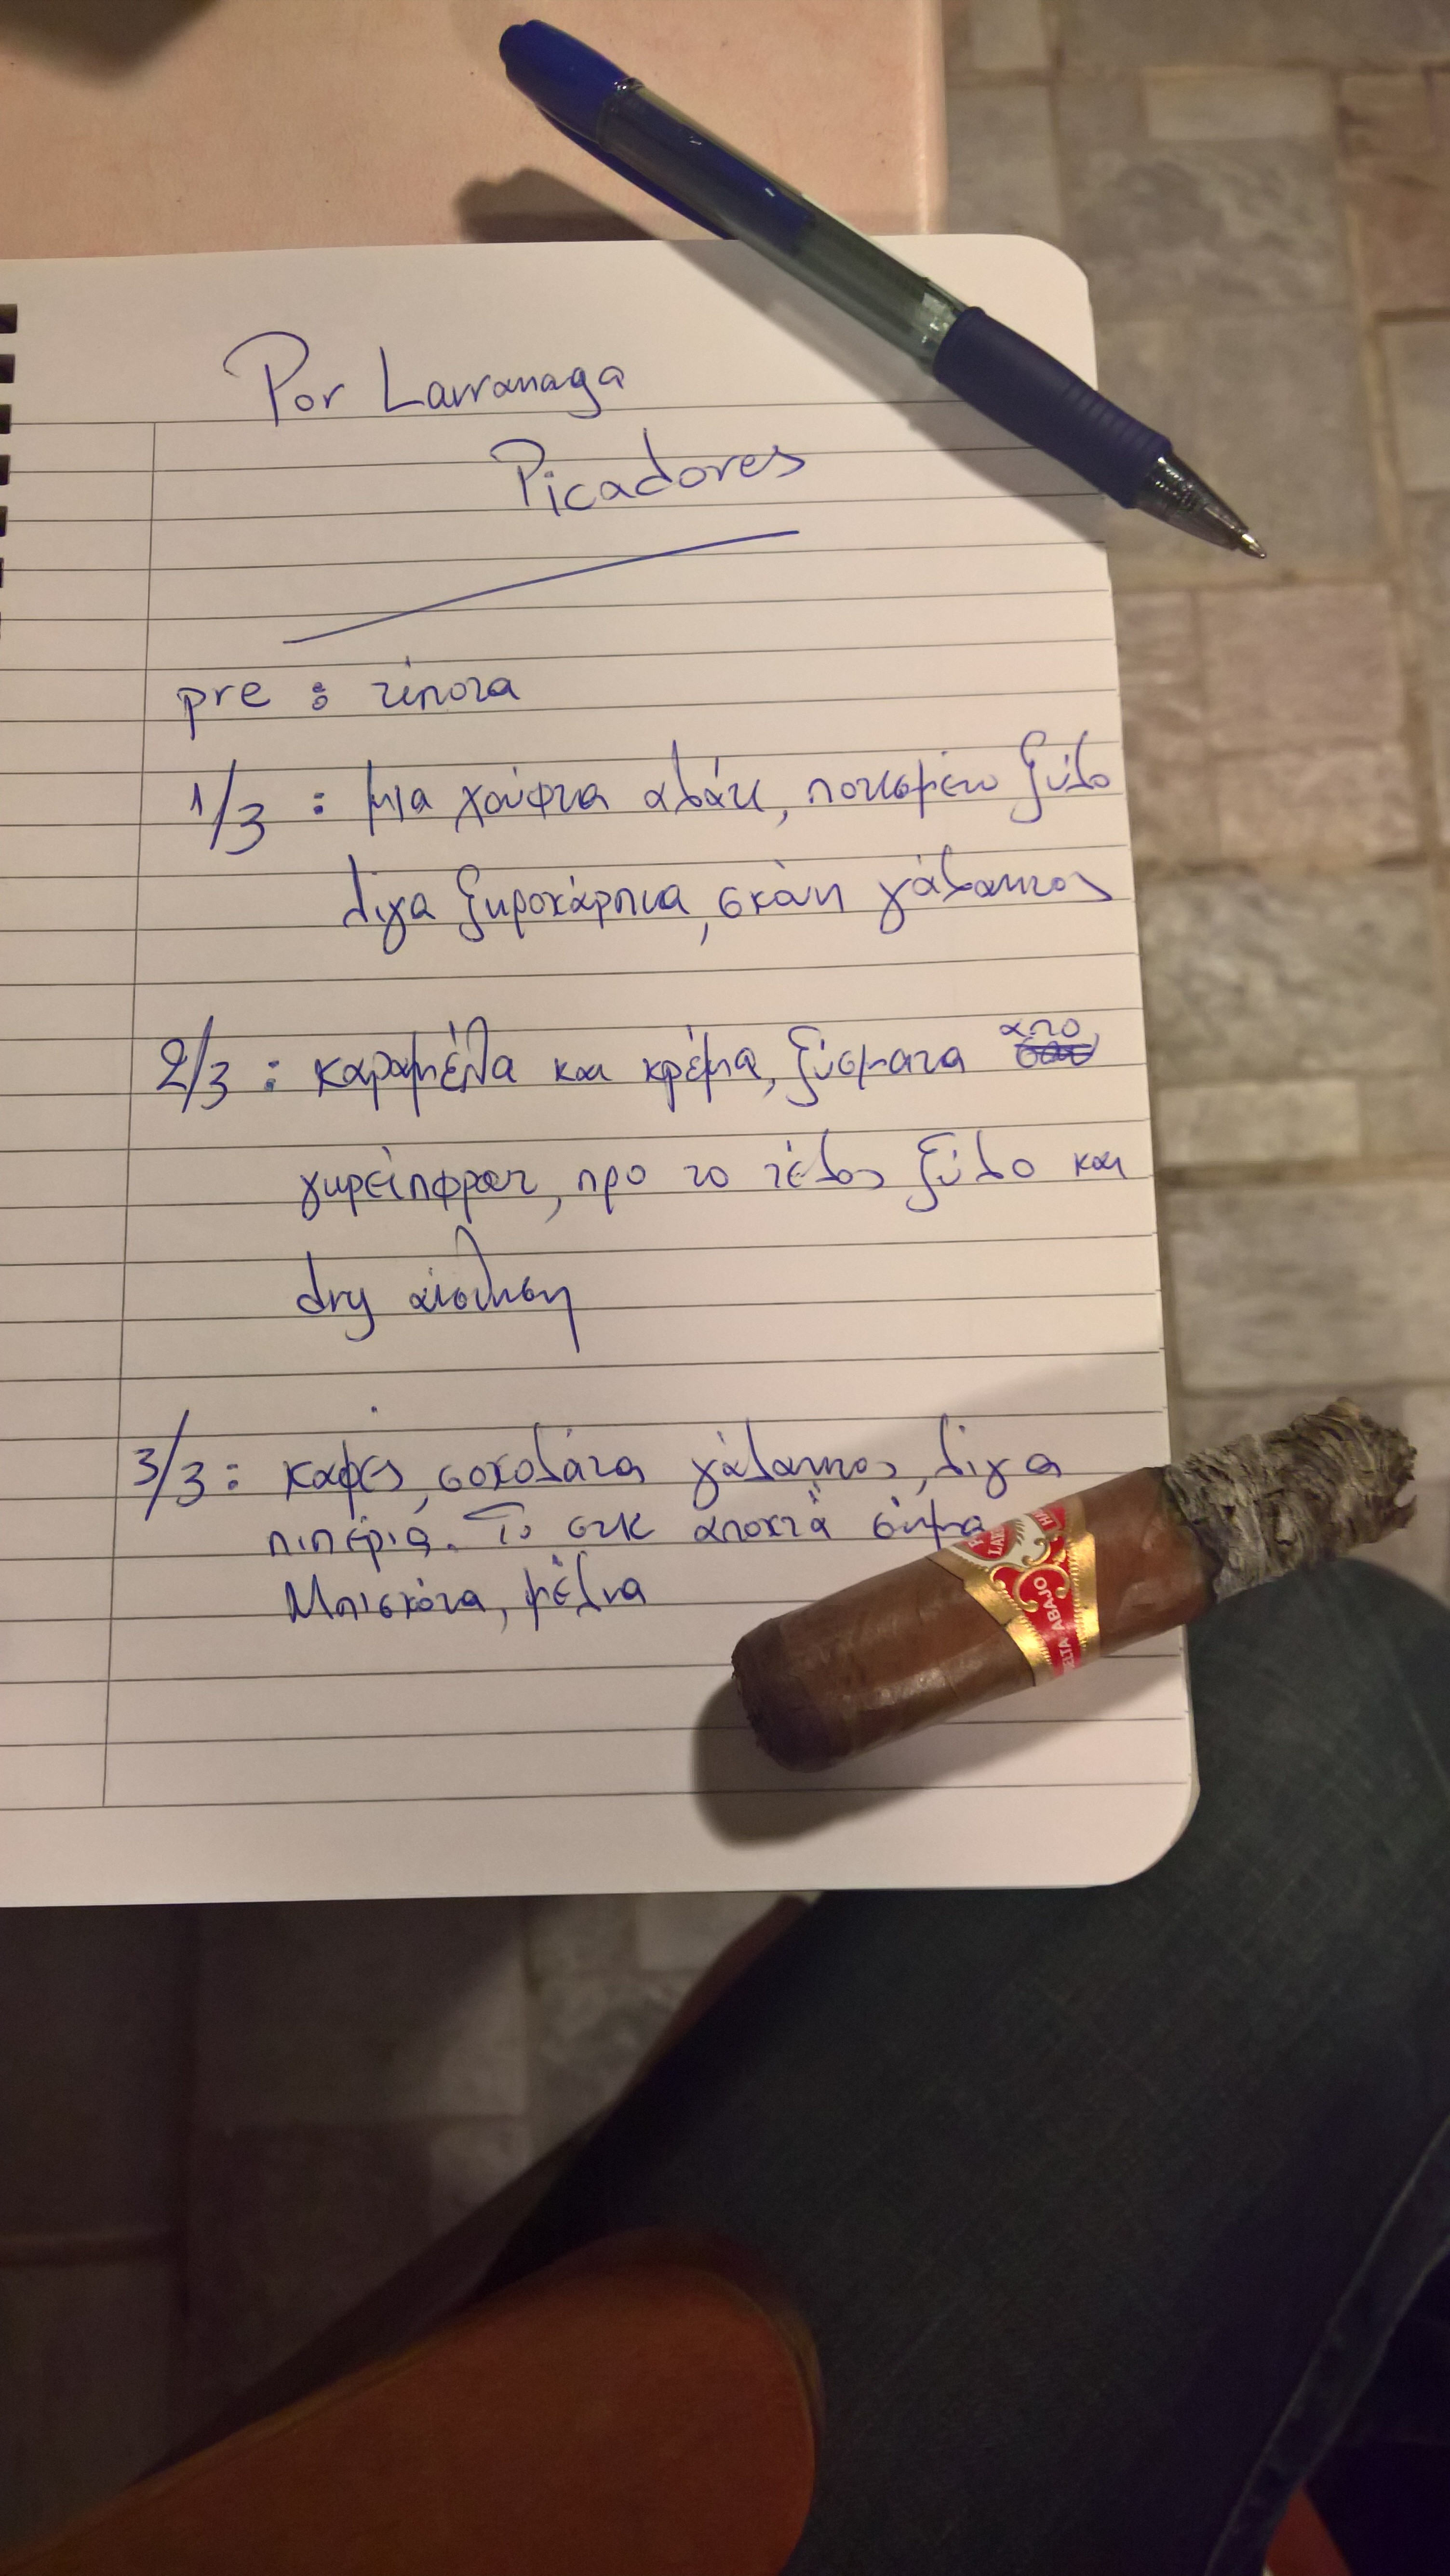 Por Larranaga
Picadores
pre : τίποτα
1/3 : μια χούφτα αλάτι, ποτισμένο ξύλο
λίγα ξηροκάρπια, σκόνη γάλακτος
2/3 : καραμέλα και κρέμα, ξύσματα απο
γκρέιπφρουτ, προ το τέλος ξύλο και
dry αίσθηση
3/3 : καφές, σοκολάτα γάλακτος, λίγα
πιπέρια. Το στικ αποκτά σώμα
Μπισκότα, μέλια
LAR
ELTA ABAJO